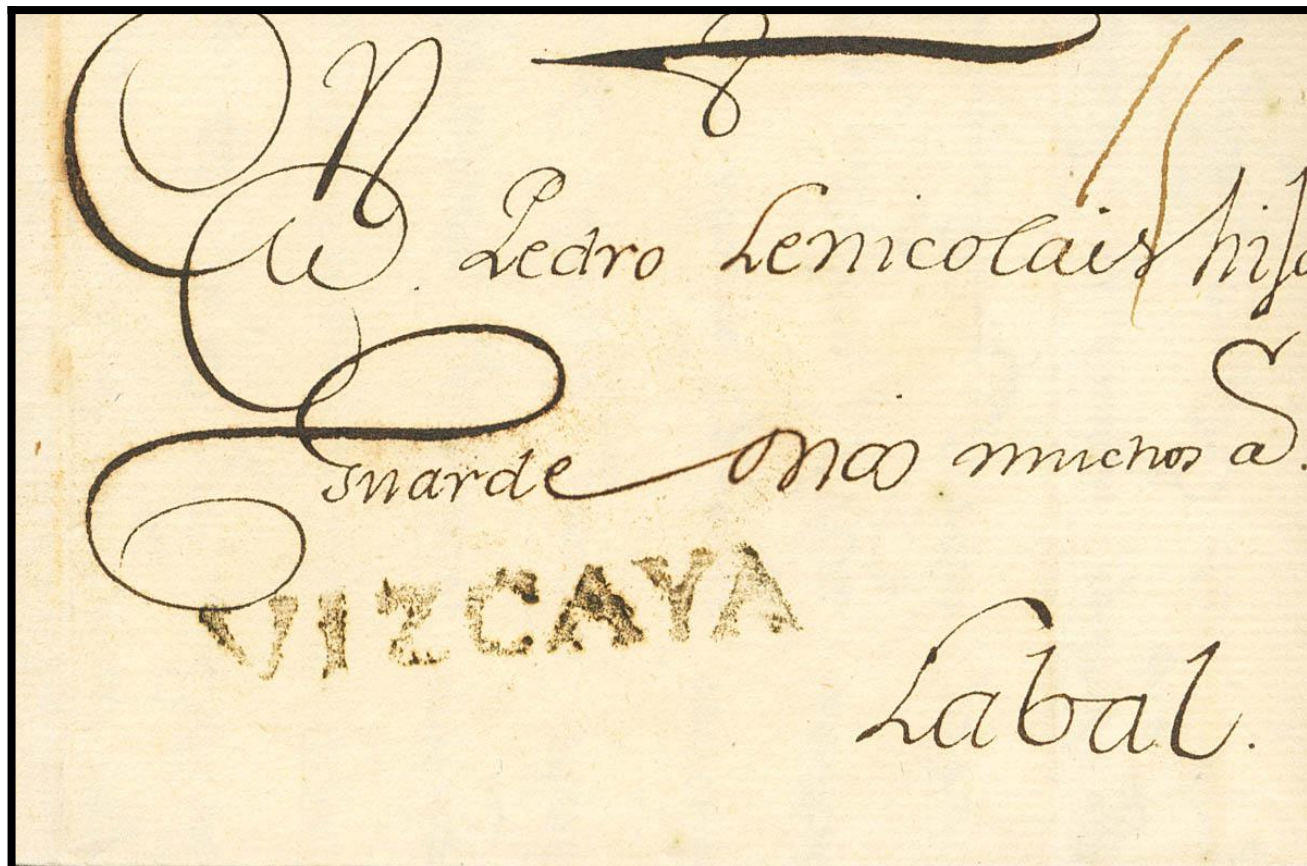 A Pedro Lenicolais hijo
Guarde Dios muchos as.
VIZCAYA
Labal.